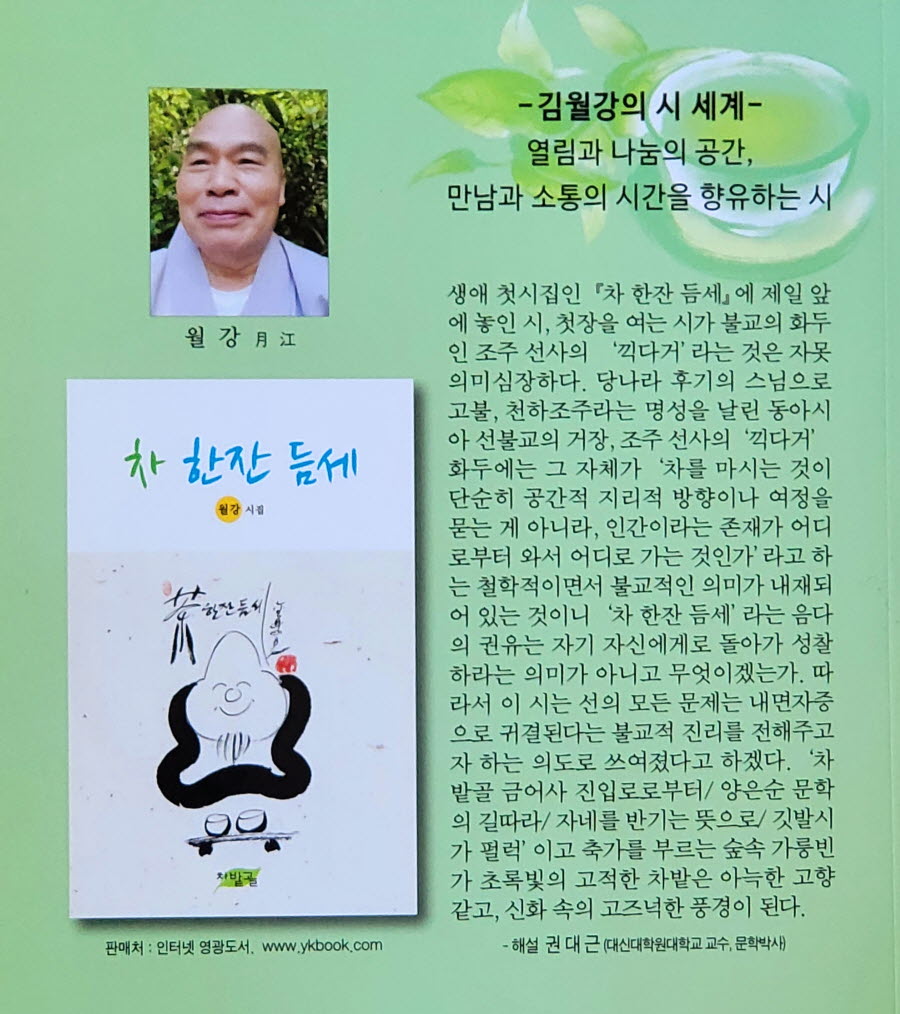 월 강 月 江
차 한잔 듬세
월강 시집
茶 한잔 듬세
차밭골
판매처 : 인터넷 영광도서, www.ykbook.com
-김월강의 시 세계-
열림과 나눔의 공간,
만남과 소통의 시간을 향유하는 시
생애 첫시집인 『차 한잔 듬세』에 제일 앞
에 놓인 시, 첫장을 여는 시가 불교의 화두
인 조주 선사의 ‘끽다거’라는 것은 자못
의미심장하다. 당나라 후기의 스님으로
고불, 천하조주라는 명성을 날린 동아시
아 선불교의 거장, 조주 선사의 ‘끽다거’
화두에는 그 자체가 ‘차를 마시는 것이
단순히 공간적 지리적 방향이나 여정을
묻는 게 아니라, 인간이라는 존재가 어디
로부터 와서 어디로 가는 것인가’라고 하
는 철학적이면서 불교적인 의미가 내재되
어 있는 것이니 ‘차 한잔 듬세’라는 음다
의 권유는 자기 자신에게로 돌아가 성찰
하라는 의미가 아니고 무엇이겠는가. 따
라서 이 시는 선의 모든 문제는 내면자증
으로 귀결된다는 불교적 진리를 전해주고
자 하는 의도로 쓰여졌다고 하겠다. ‘차
밭골 금어사 진입로로부터/ 양은순 문학
의 길따라/ 자네를 반기는 뜻으로/ 깃발시
가 펄럭’이고 축가를 부르는 숲속 가릉빈
가 초록빛의 고적한 차밭은 아늑한 고향
같고, 신화 속의 고즈넉한 풍경이 된다.
- 해설 권 대 근 (대신대학원대학교 교수, 문학박사)